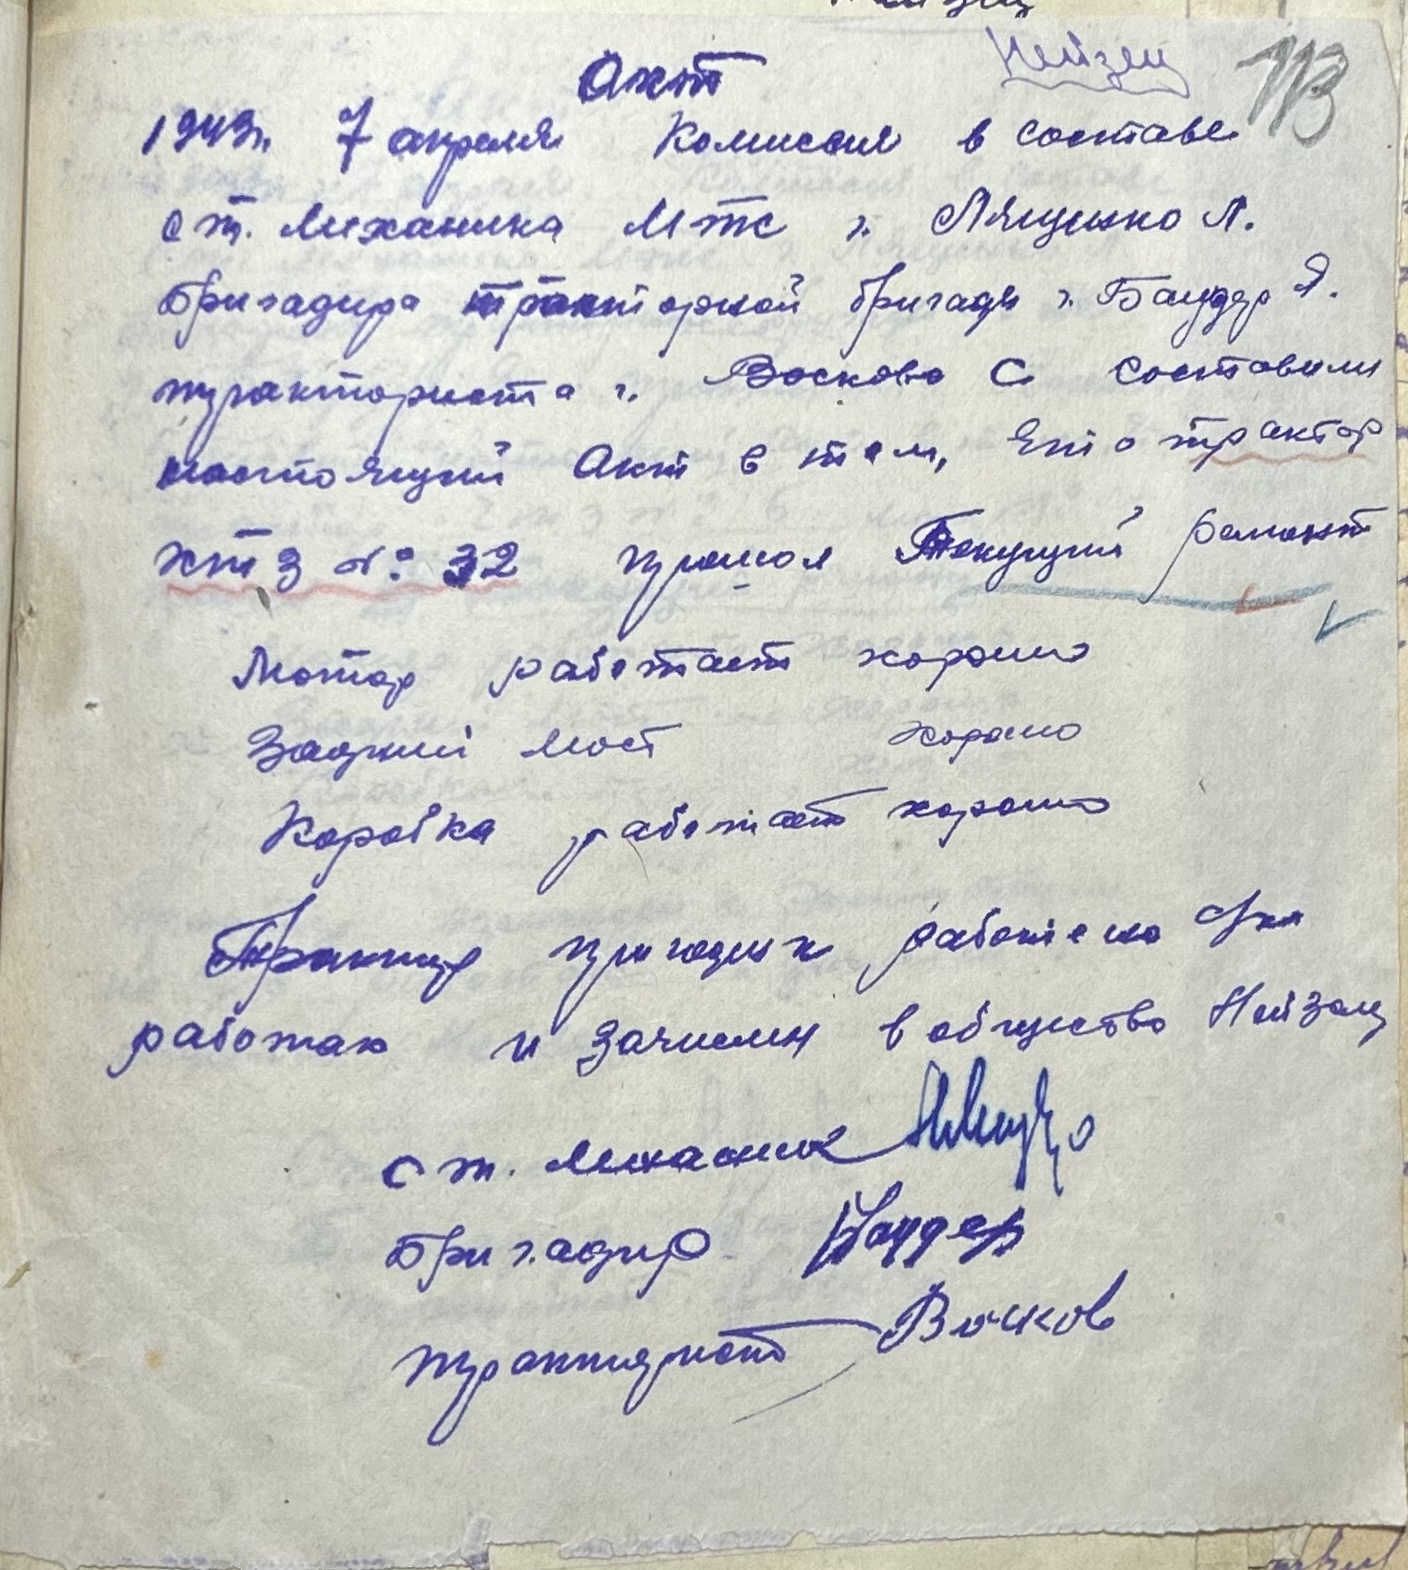 Нейзац
113
Акт
1943г. 7 апреля Комиссия в составе
ст. Механика МТС г. Лященко Л.
бригадира тракторной бригады г. Бауддер Я.
тракториста г. Воскова С. составили
настоящий Акт в том, что трактор
ХТЗ № 32 прошол Текущий ремонт
Мотор работает хорошо
Задний мост хорошо
Коробка работает хорошо
Трактор пригоден к работе на
работах и зачислен в общество Нейзац
ст. Механик
Бригадир Бауддер
Тракторист Восков